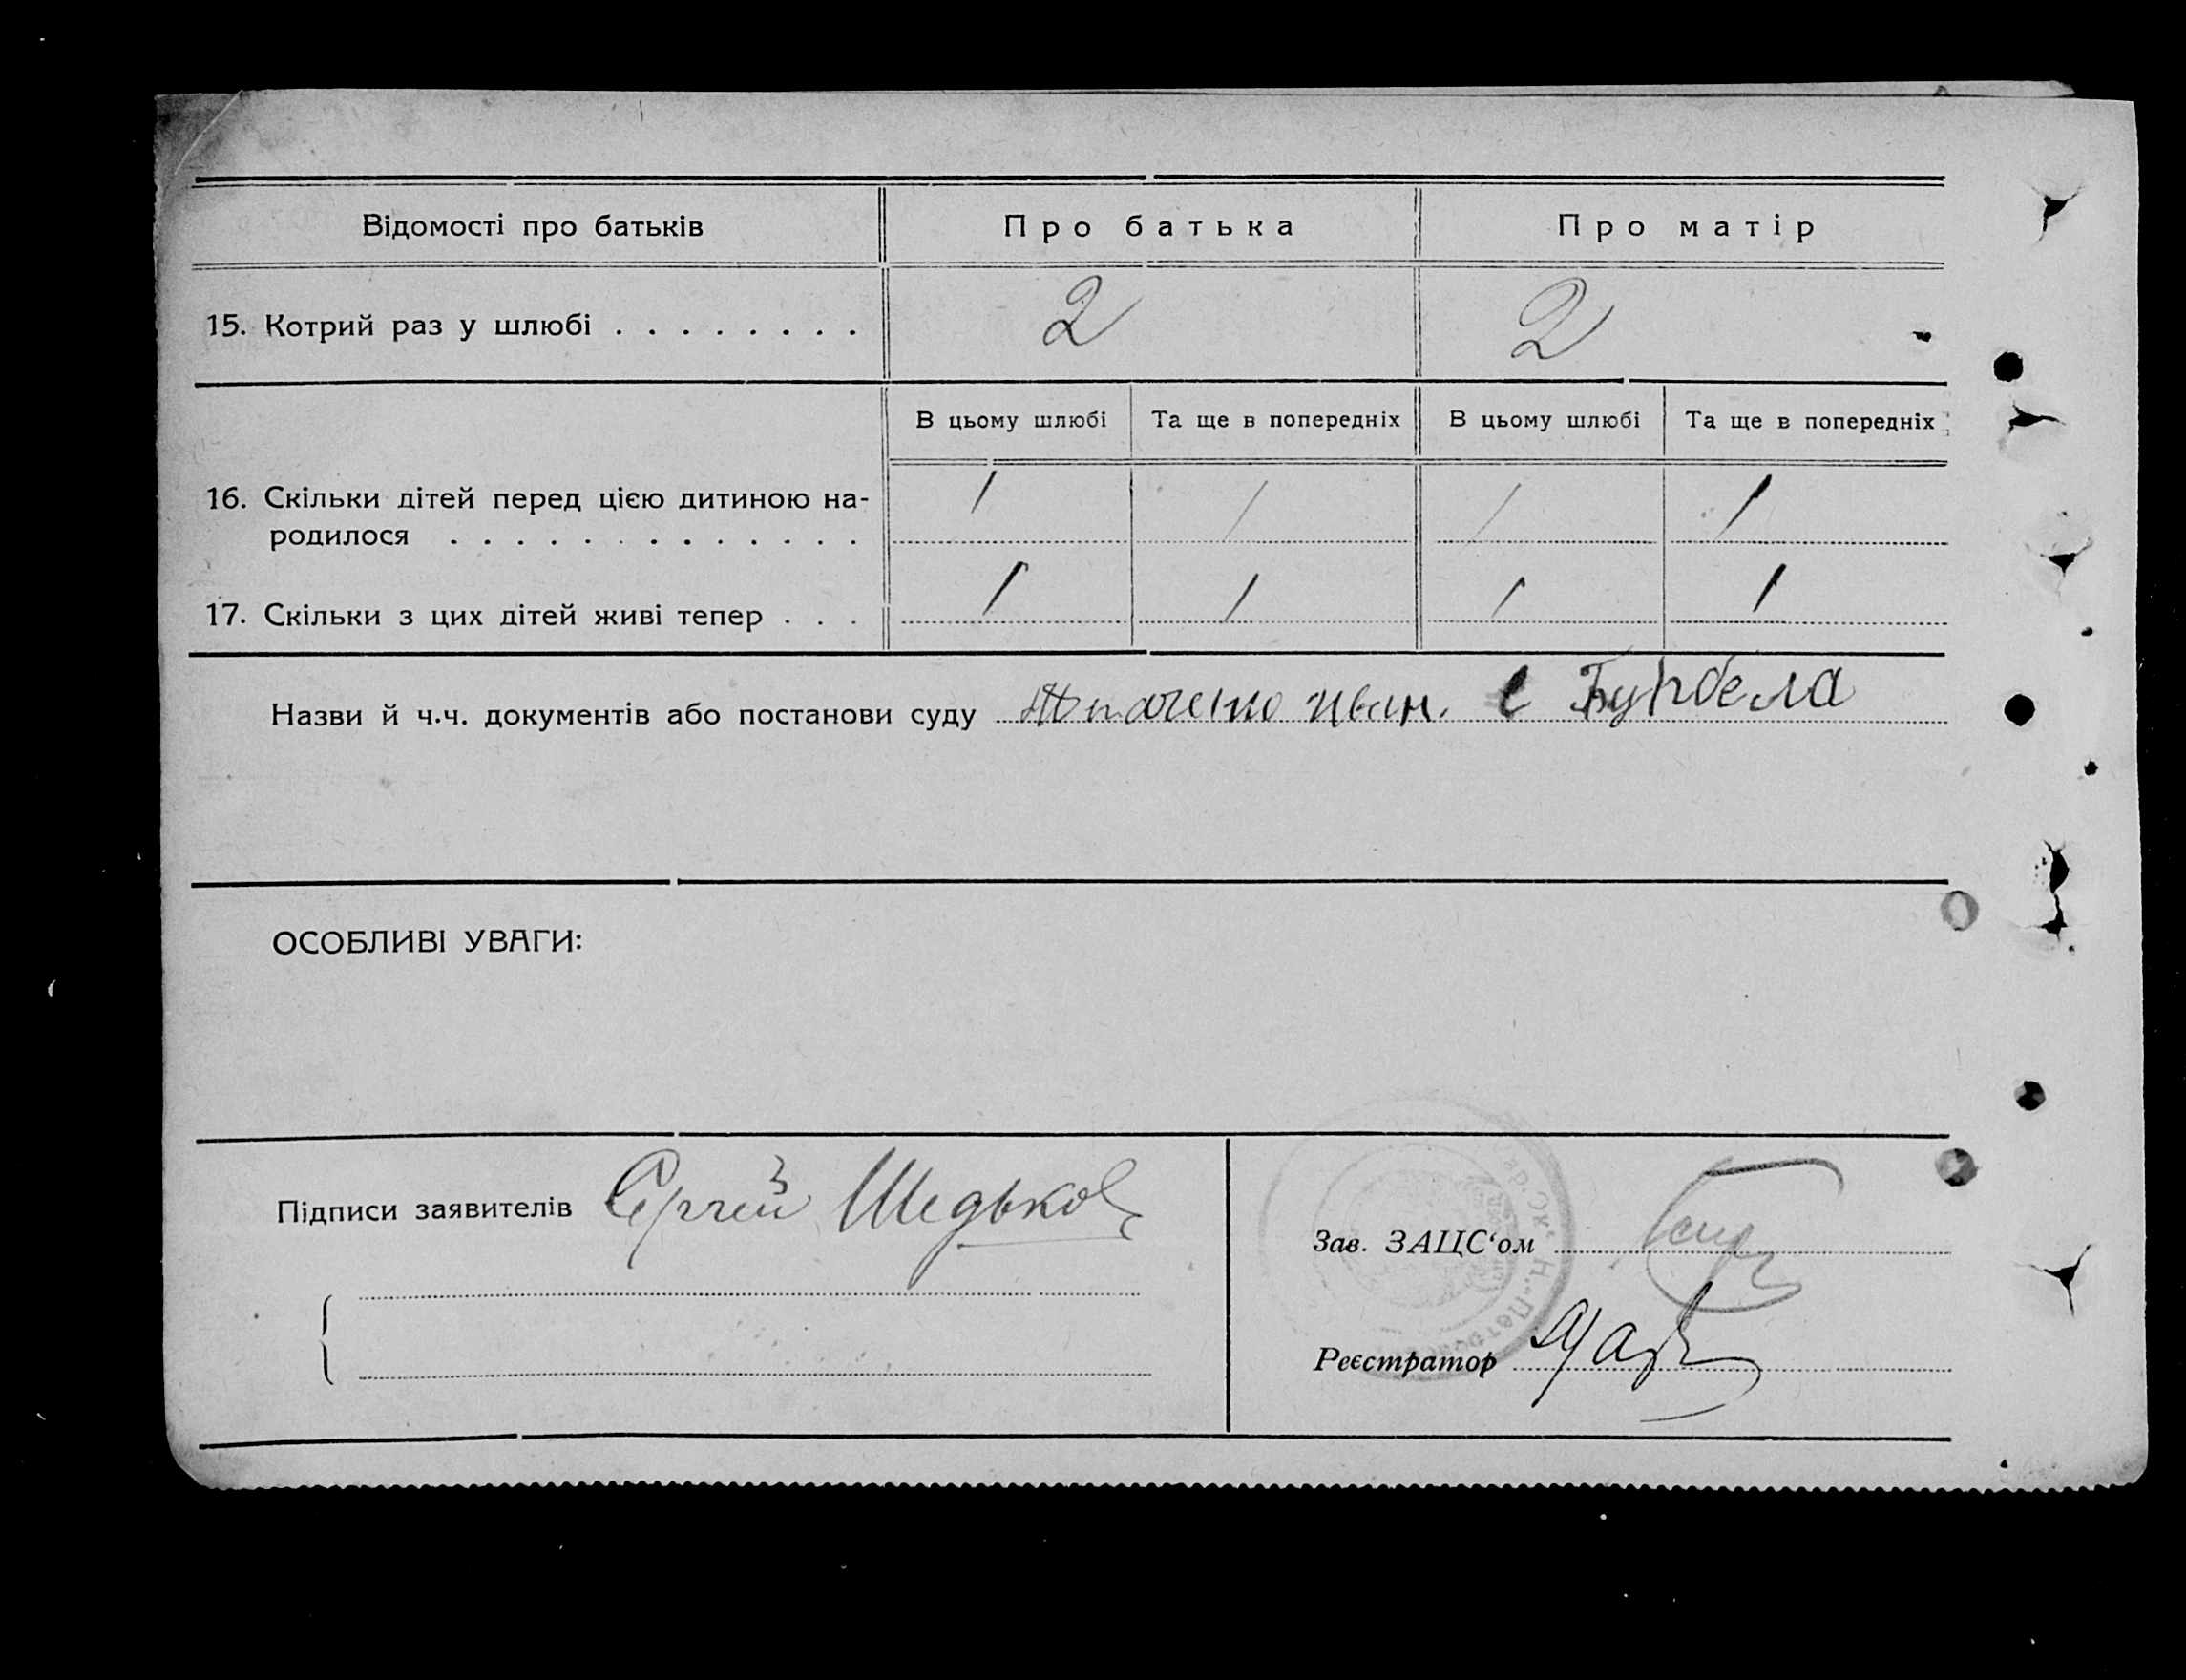 Відомості про батьків Про батька Про матір
15. Котрий раз у шлюбі . . . . . . . . 2 2
В цьому шлюбі Та ще в попередніх В цьому шлюбі Та ще в попередніх
16. Скільки дітей перед цією дитиною на-
родилося . . . . . . . . . . . . . 1 / / 1
17. Скільки з цих дітей живі тепер . . . 1 / / 1
Назви й ч.ч. документів або постанови суду иван. с
ОСОБЛИВІ УВАГИ:
Підписи заявителів Сергей Шедьков
Зав. ЗАЦС‘ом
Реєстратор